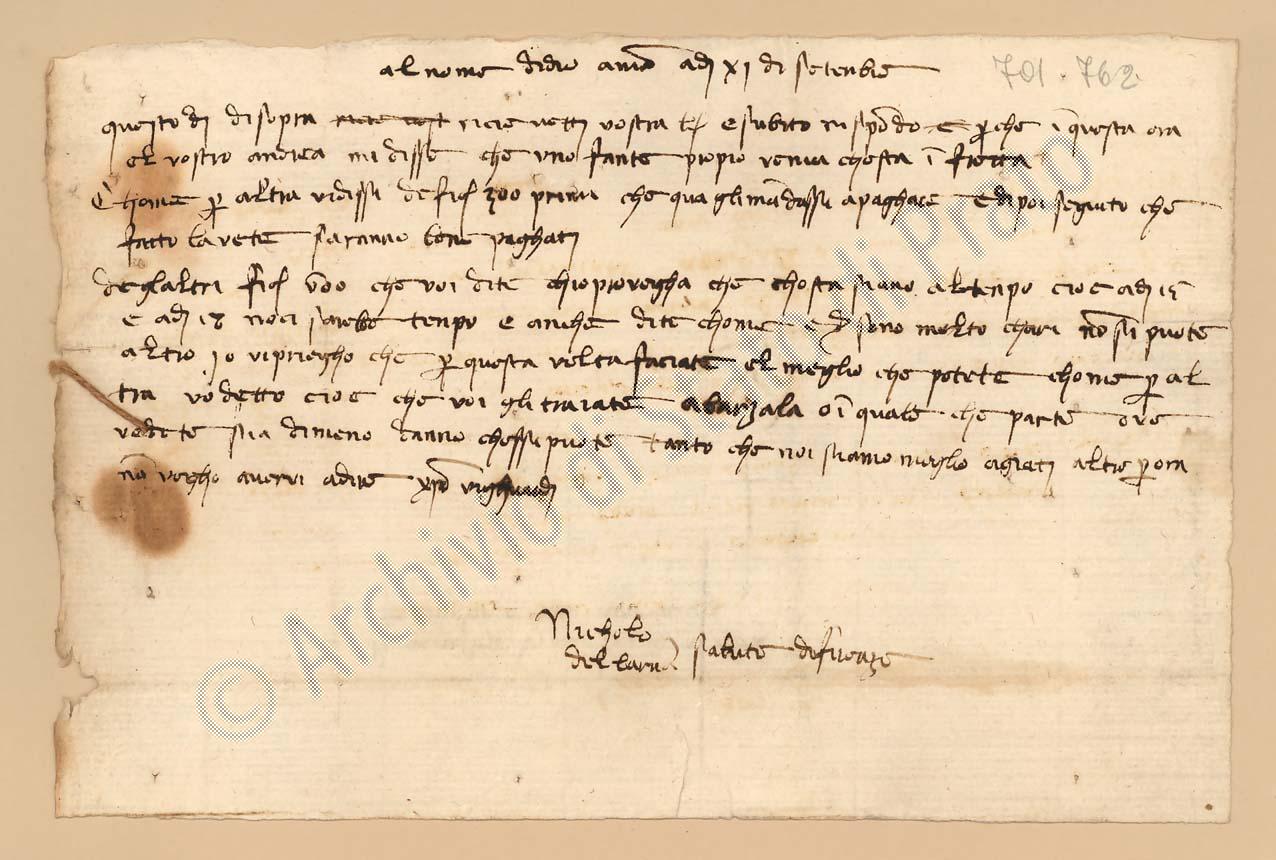 al nome didio amen adj xj di setenbre
701.762
questo dj disopra ricievetti vostra e subito rispōdo e p̄che ī questa ora
el vostro andrea mi disse che uno fante propio venia chostà ī fretta
chome p̄ altra vi dissi de fior 300 primi che qua gli mādassi a paghare e dipoi seguito che
fatto l avete saranno bene paghati
degl altri fior che voi dite ch io provegha che chostà siano al tenpo cioe adj 15
e adj noci sarebe tenpo e anche dite chome sono molto chari nō si puote
altro io vi priegho che p̄ questa volta faciate el meglio che potete chome p̄ al
tra v o detto cioe che voi gli traiate a barzalona o ī quale che parte ove
vedete sia di meno danno che ssi puote tanto che noi siamo meglio agiati altro p̄ ora
nō vegho avervi a dire xpo vi ghuardj
Nicholo
del salute di firenze
© Archivio di Stato di Prato